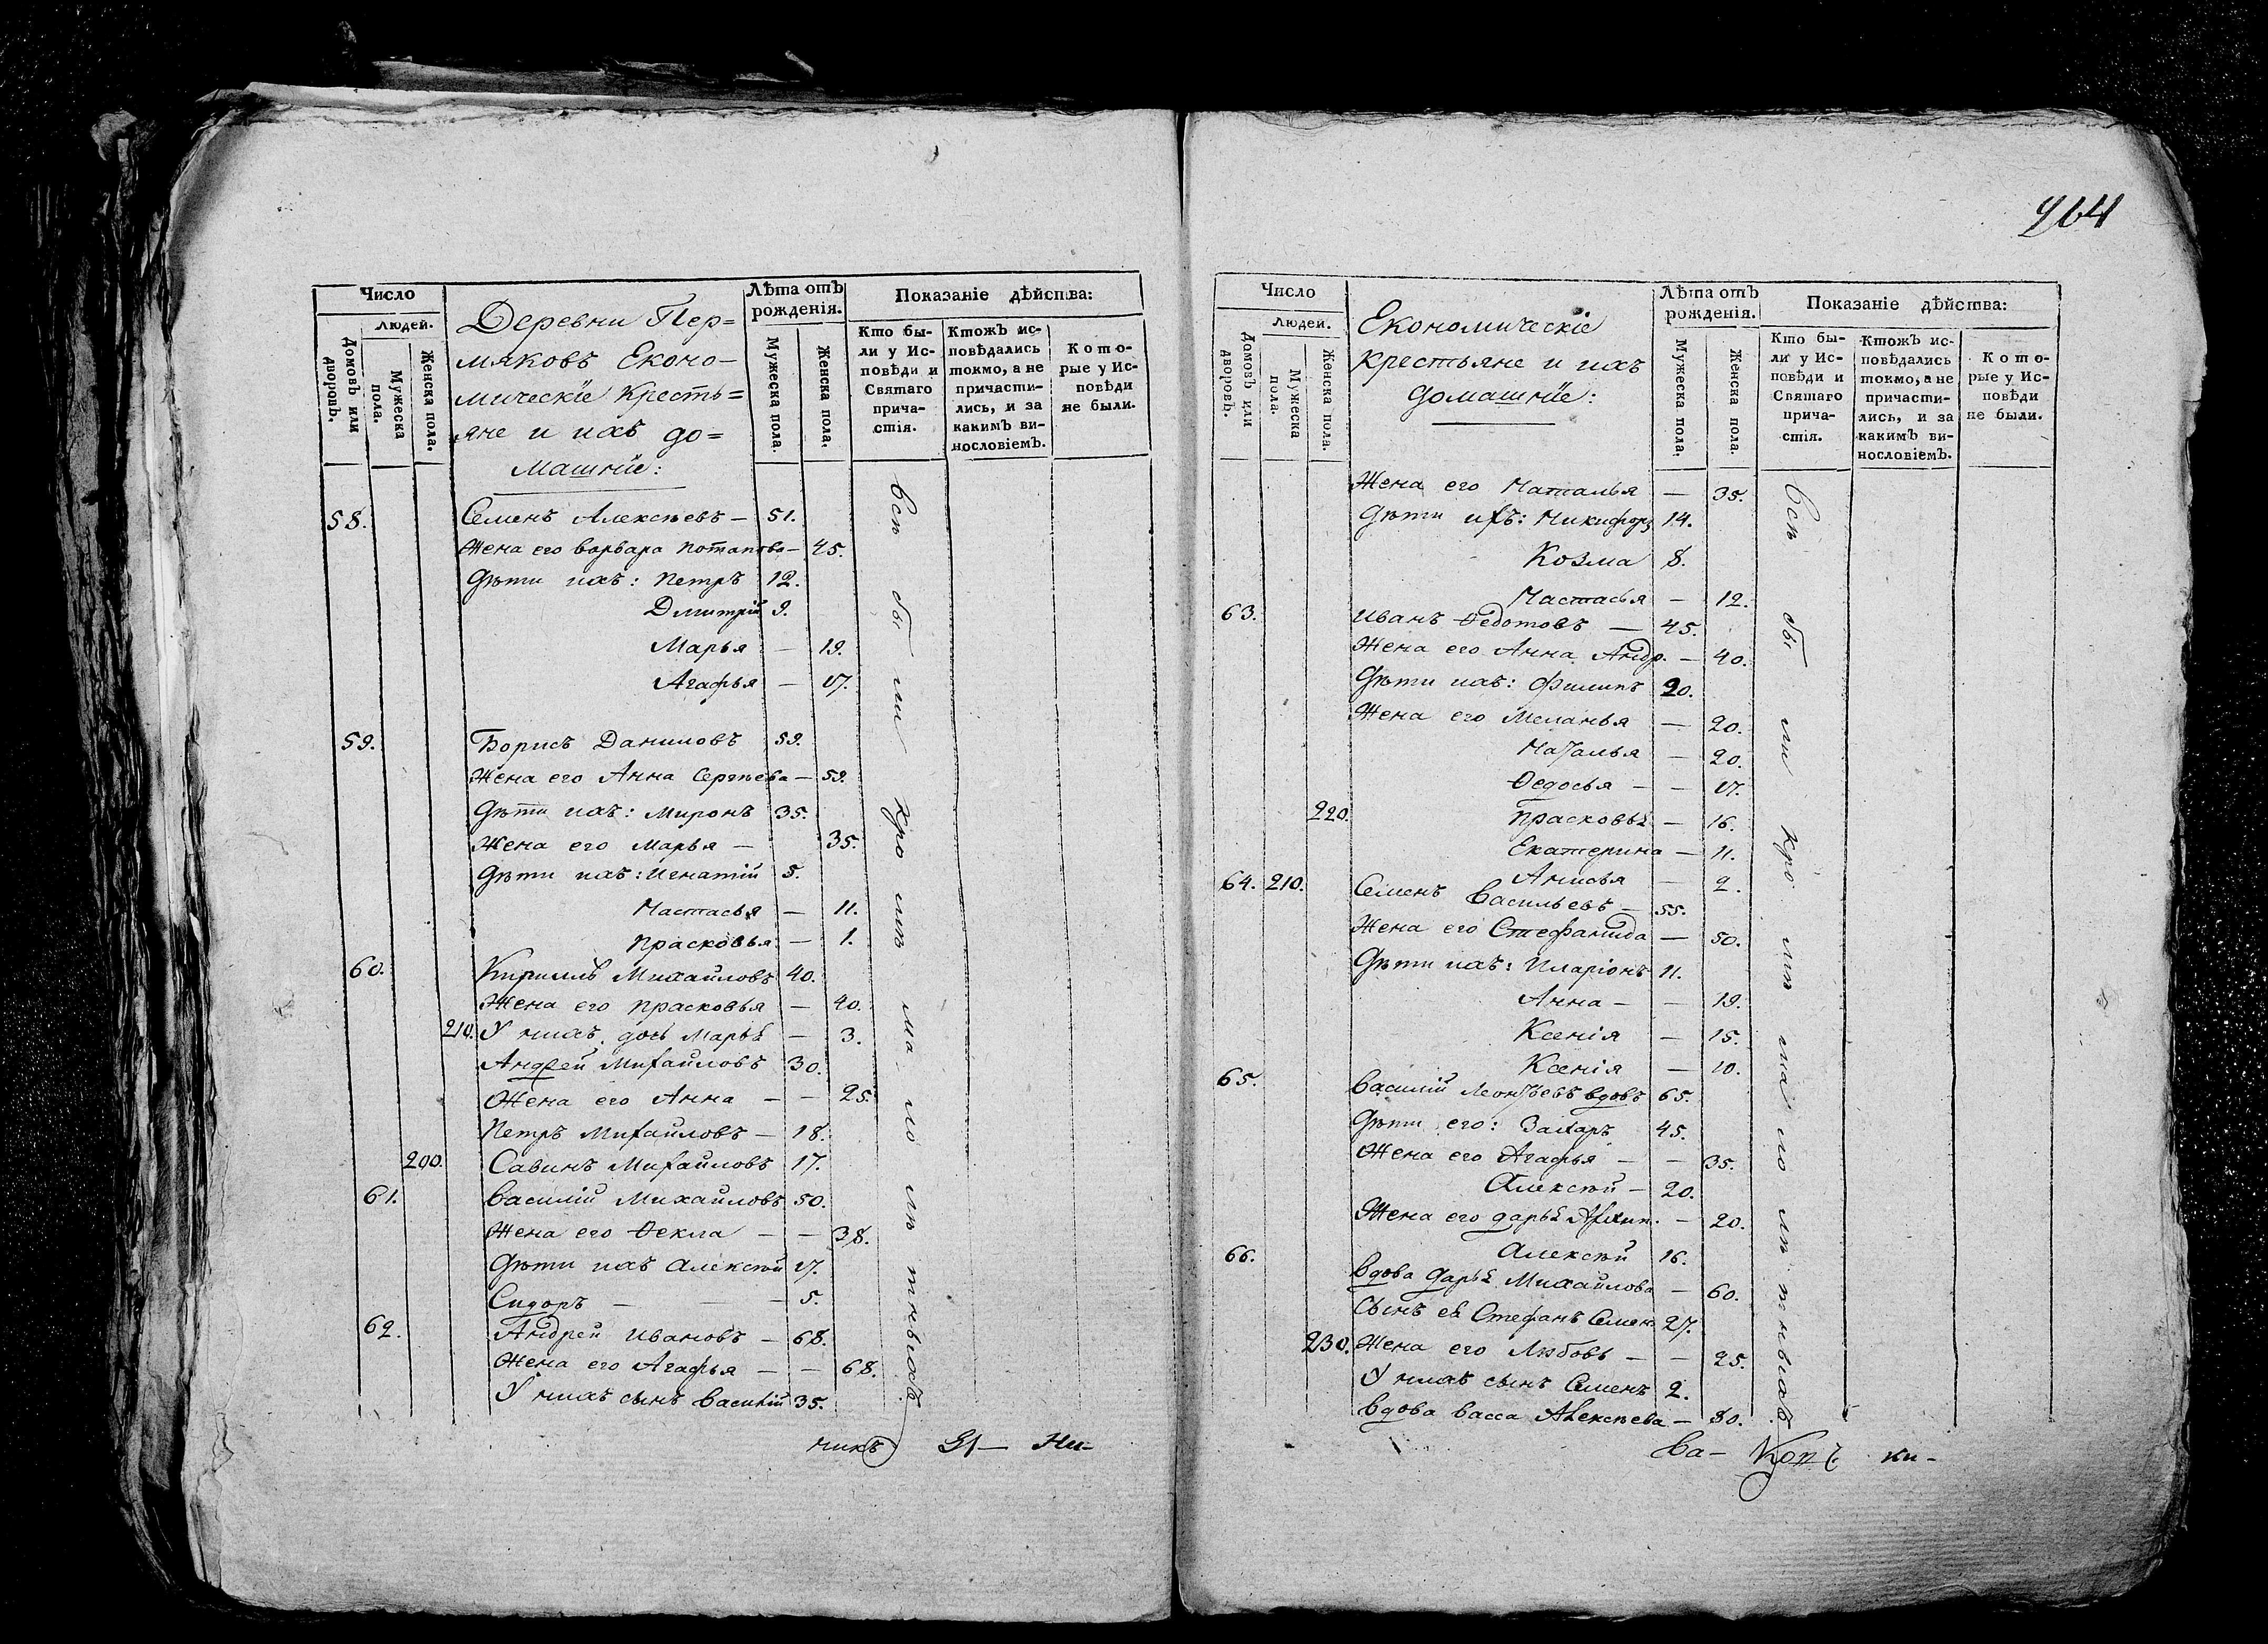 964
Число
Людей.
Домовъ или дворовъ.
Мужеска пола.
Женска пола.
Деревни Пер=
мяковъ Еконо-
мическіе Кресть=
яне и ихъ до=
машніе:
Лѣта отъ рожденія.
Мужеска пола.
Женска пола.
Показаніе дѣйства:
Кто бы-
ли у Ис-
повѣди и
Святаго
прича-
стія.
Ктожъ ис-
повѣдались
токмо, а не
причасти-
лись, и за
какимъ ви-
нословіемъ.
Кото-
рые у Ис-
повѣди
не были.
58. Семенъ Алексѣевъ — 51.
Жена его Варвара Потапова — 45.
Дѣти ихъ: Петръ 12.
Дмитрій 9.
Марья — 19.
Агафья — 17.
59. Борисъ Даниловъ 59.
Жена его Анна Сергѣева — 59.
Дѣти ихъ: Миронъ 35.
Жена его Марья — 35.
Дѣти ихъ: Игнатій 5.
Настасья — 11.
Прасковья — 1.
60. Кириллъ Михайловъ 40.
Жена его Прасковья — 40.
210. У нихъ дочь Марья — 3.
Андрей Михайловъ 30.
Жена его Анна — — 25.
Петръ Михайловъ — 18.
200. Савинъ Михайловъ 17.
61. Василій Михайловъ 50.
Жена его Ѳекла — — 38.
Дѣти ихъ Алексѣй 17.
Сидоръ — — 5.
62. Андрей Ивановъ — 68.
Жена его Агафья — — 68.
У нихъ сынъ Василій 35.
всѣ бы ли кро мѣ ма ло лѣ тныхъ
никъ Ни-
Число
Людей.
Домовъ или дворовъ.
Мужеска пола.
Женска пола.
Економическіе
крестьяне и ихъ
домашніе:
Лѣта отъ рожденія.
Мужеска пола.
Женска пола.
Показаніе дѣйства:
Кто бы-
ли у Ис-
повѣди и
Святаго
прича-
стія.
Ктожъ ис-
повѣдались
токмо, а не
причасти-
лись, и за
какимъ ви-
нословіемъ.
Кото-
рые у Ис-
повѣди
не были.
Жена его Наталья — 35.
Дѣти ихъ: Никифоръ 14.
Козма 8.
Настасья — 12.
63. Иванъ Ѳедотовъ — 45.
Жена его Анна Андр. — 40.
Дѣти ихъ: Филипъ 20.
Жена его Меланья — 20.
Наталья — 20.
Ѳедосья — — 17.
220. Прасковья — 16.
Екатерина — 11.
Анисья — 2.
64. 210. Семенъ Васильевъ — 55.
Жена его Стефанида — 50.
Дѣти ихъ: Иларіонъ 11.
Анна — — 19.
Ксенія — 15.
Ксенія — 10.
65. Василій Леонтьевъ вдовъ 65.
Дѣти его: Захаръ 45.
Жена его Агафья — — 35.
Алексѣй — 20.
Жена его Дарья Архип. — 20.
Алексѣй 16.
66. Вдова Дарья Михайлова — 60.
Сынъ ея Стефанъ Семен 27.
230. Жена его Любовь — — 25.
У нихъ сынъ Семенъ 2.
Вдова Васса Алексѣева — 80.
всѣ бы ли кро мѣ ма ло лѣ тныхъ
Ва- ки-